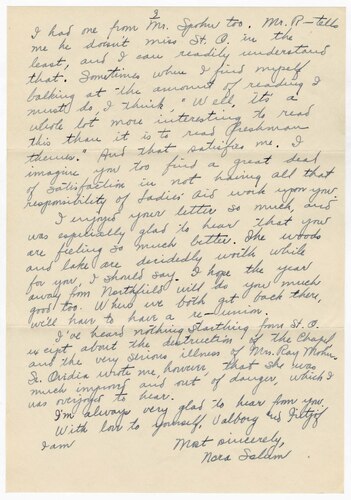 3
I had one from Mr. Spohn too. Mr. R- tells
me he doesn't miss St. O. in the
least, and I can readily understand
that. Sometimes when I find myself
balking at "the amount of reading I
must do, I think, "Well, it's a
whole lot more interesting to read
this than it is to read freshman
themes." And that satisfies me. I
imagine you too find a great deal
of satisfaction in not having all that
responsibility of Ladies' Aid work upon you.
I enjoyed your letter so much, and
was especially glad to hear that you
are feeling so much better. The woods
and lake are decidedly worth while
for you, I should say. I hope the year
away from Northfield will do you much
good too. When we both get back there,
we'll have to have a re-union.
I've heard nothing startling from St. O.
except about the destruction of the Chapel
and the very serious illness of Mrs. Ray
Ovidia wrote me, however, that she was
much improved and out of danger, which I
was overjoyed to hear.
I'm always very glad to hear from you.
With love to yourself, Valborg and
I am
Most sincerely,
Nora Solum